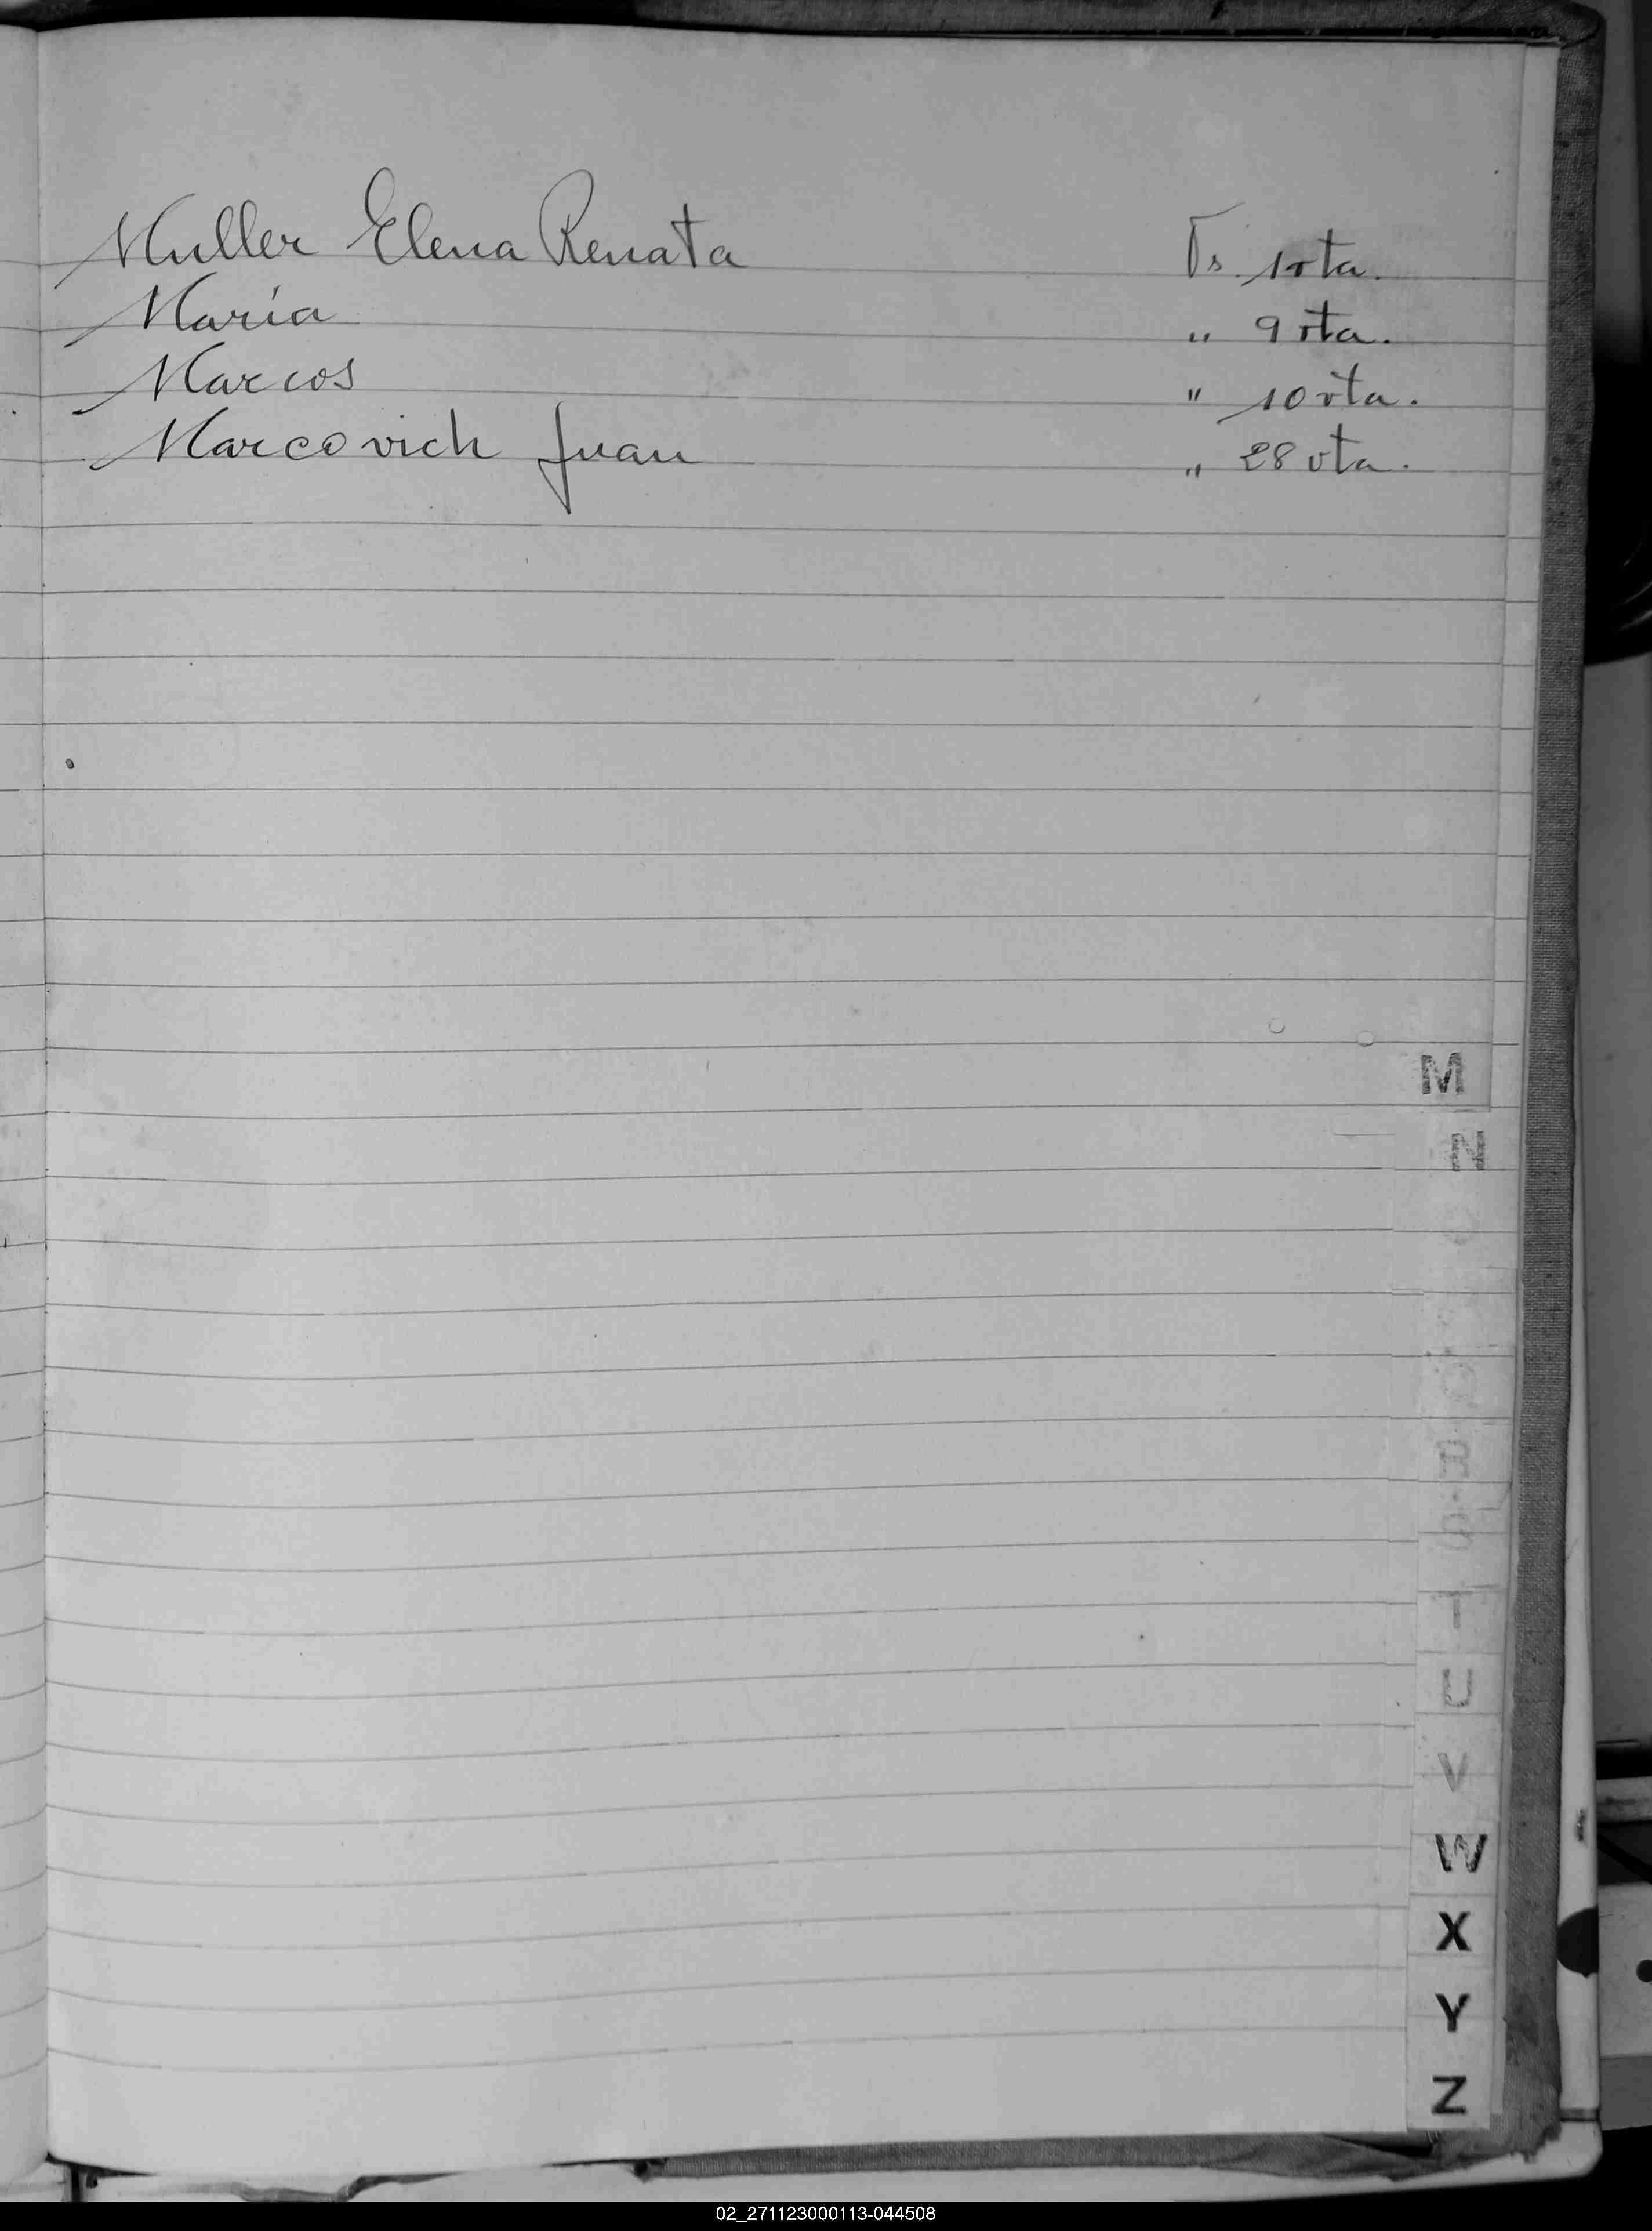 Muller Elena Renata Fs. 1 vta.
María " 9 vta.
Marcos " 10 vta.
Marcovich Juan " 28 vta.
M
N
O
Q
R
S
T
U
V
W
X
Y
Z
02_271123000113-044508